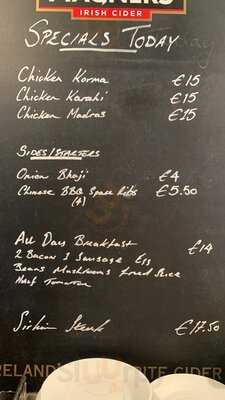 MAGNERS
IRISH CIDER
Specials Today
Chicken Korma €15
Chicken Karahi €15
Chicken Madras €15
Sides/Starters
Onion Bhaji €4
Chinese BBQ Spare Ribs €5.50
(4)
All Day Breakfast €14
2 Bacon 1 Sausage Egg
Beans Mushrooms Fried Slice
Half Tomatoe
Sirloin Steak €17.50
CIDER